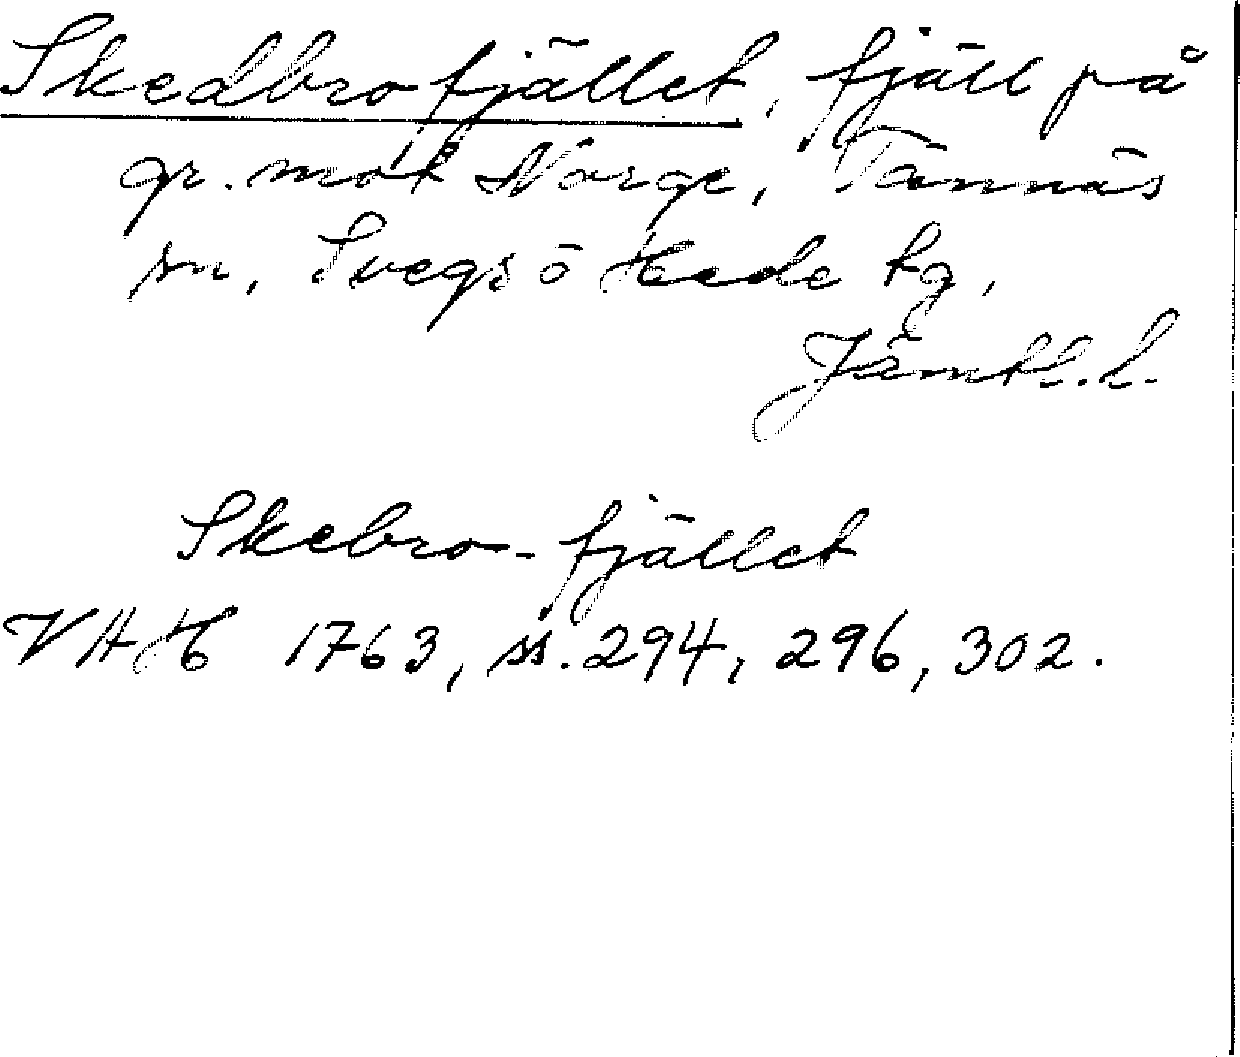 Skedbrofjället, fjäll på
gr. mot Norge, Tännäs
sn, Svegs ö Hede tg,
Jämtl. l.
Skebro-fjället
VAH 1763, ss. 294, 296, 302.